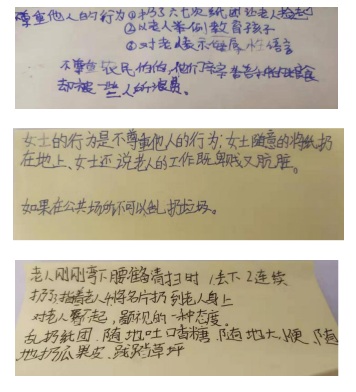 尊重他人的行为①扔了六七次纸团让老人捡起
②以老人举例教育孩子
③对老人表示侮辱性语言
不尊重农民伯伯,他们辛辛苦苦种的粮食
却被一些人的浪费。
女士的行为是不尊重他人的行为;女士随意的将纸扔
在地上、女士还说老人的工作既卑贱又肮脏。
如果在公共场所不可以乱扔垃圾。
老人刚刚弯下腰准备清扫时 1丢下 2连续
扔了 指着老人并将名片扔到老人身上
对老人看不起,鄙视的一种态度。
乱扔纸团 随地吐口香糖 随地大小便 随
地扔瓜果皮、践踏草坪